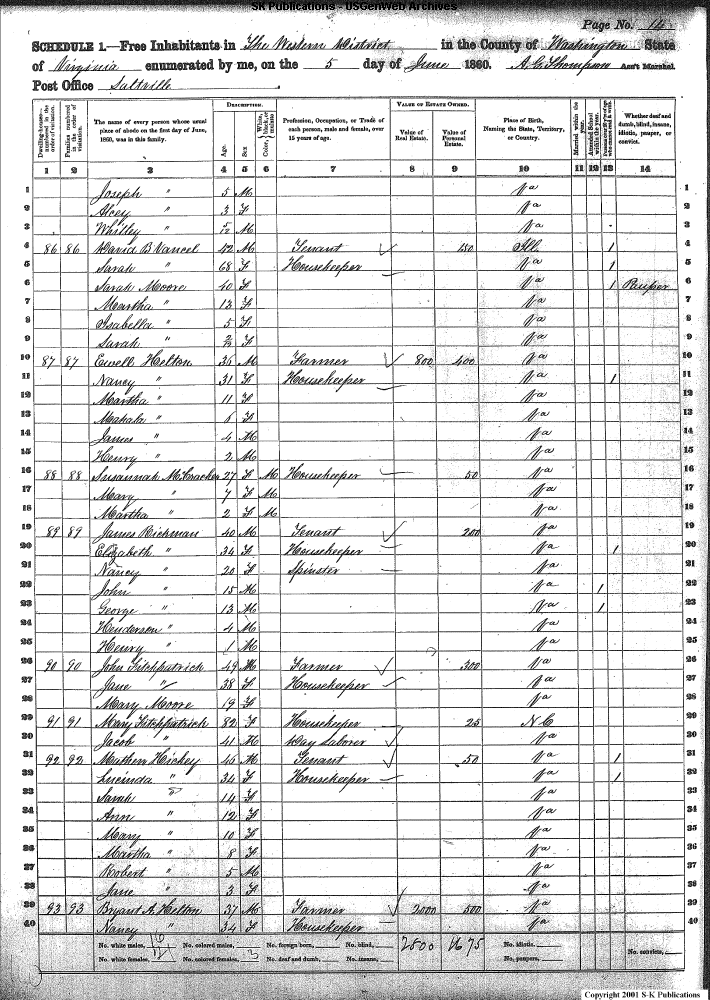 SK Publications - USGenWeb Archives
Page No. 14
SCHEDULE 1.—Free Inhabitants in The Western District in the County of Washington State
of Virginia enumerated by me, on the 5 day of June 1860. A. C. Thompson Ass't Marshal.
Post Office Saltville
Dwelling-houses—numbered in the order of visitation.
Families numbered in the order of visitation.
The name of every person whose usual place of abode on the first day of June, 1860, was in this family.
DESCRIPTION.
Age. Sex. Color, White, black, or mulatto.
Profession, Occupation, or Trade of each person, male and female, over 15 years of age.
VALUE OF ESTATE OWNED.
Value of Real Estate. Value of Personal Estate.
Place of Birth, Naming the State, Territory, or Country.
Married within the year. Attended School within the year.
Whether deaf and dumb, blind, insane, idiotic, pauper, or convict.
1 2 3 4 5 6 7 8 9 10 11 12 13 14
1 Joseph " 5 M Va 1
2 3 F Va 2
3 Whitley " M Va 3
4 86 86 David B Vancel 42 M Tenant 150 Ill. 1 4
5 Sarah " 68 F Housekeeper Va 1 5
6 Sarah Moore 40 F Va 1 Pauper 6
7 Martha " 12 F Va 7
8 Isabella " 5 F Va 8
9 Sarah " F Va 9
10 87 87 Ewell Helton 35 M Farmer 800 400 Va 10
11 Nancy " 31 F Housekeeper Va 1 11
12 Martha " 11 F Va 12
13 Mahala " 6 F Va 13
14 James " 4 M Va 14
15 Henry " 2 M Va 15
16 88 88 Susannah McCracken 27 F M Housekeeper 50 Va 16
17 Mary " 7 F M Va 17
18 Martha " 2 F M Va 18
19 89 89 James Rickman 40 M Tenant 200 Va 19
20 Elizabeth " 34 F Housekeeper Va 1 20
21 Nancy " 20 F Spinster Va 21
22 John " 15 M Va 1 22
23 George " 13 M Va 1 23
24 Henderson " 4 M Va 24
25 Henry " 1 M Va 25
26 90 90 John Fitzpatrick 49 M Farmer 300 Va 26
27 Jane " 38 F Housekeeper Va 27
28 Mary Moore 19 F Va 28
29 91 91 Mary Fitzpatrick 82 F Housekeeper 25 N C 29
30 Jacob " 41 M Day Laborer Va 30
31 92 92 Hickey 45 M Tenant 50 Va 1 31
32 Lucinda " 34 F Housekeeper Va 1 32
33 Sarah " 14 F Va 33
34 Ann " 12 F Va 34
35 Mary " 10 F Va 35
36 Martha " 8 F Va 36
37 Robert " 5 M Va 37
38 Jane " 3 F Va 38
39 93 93 Bryant A. Helton 37 M Farmer 2000 500 Va 39
40 Nancy " 34 F Housekeeper Va 40
No. white males, 16 No. colored males, No. foreign born, No. blind, 2800 1675 No. idiotic,
No. white females, 21 No. colored females, 3 No. deaf and dumb, No. insane, No. paupers, No. convicts,
Copyright 2001 S-K Publications